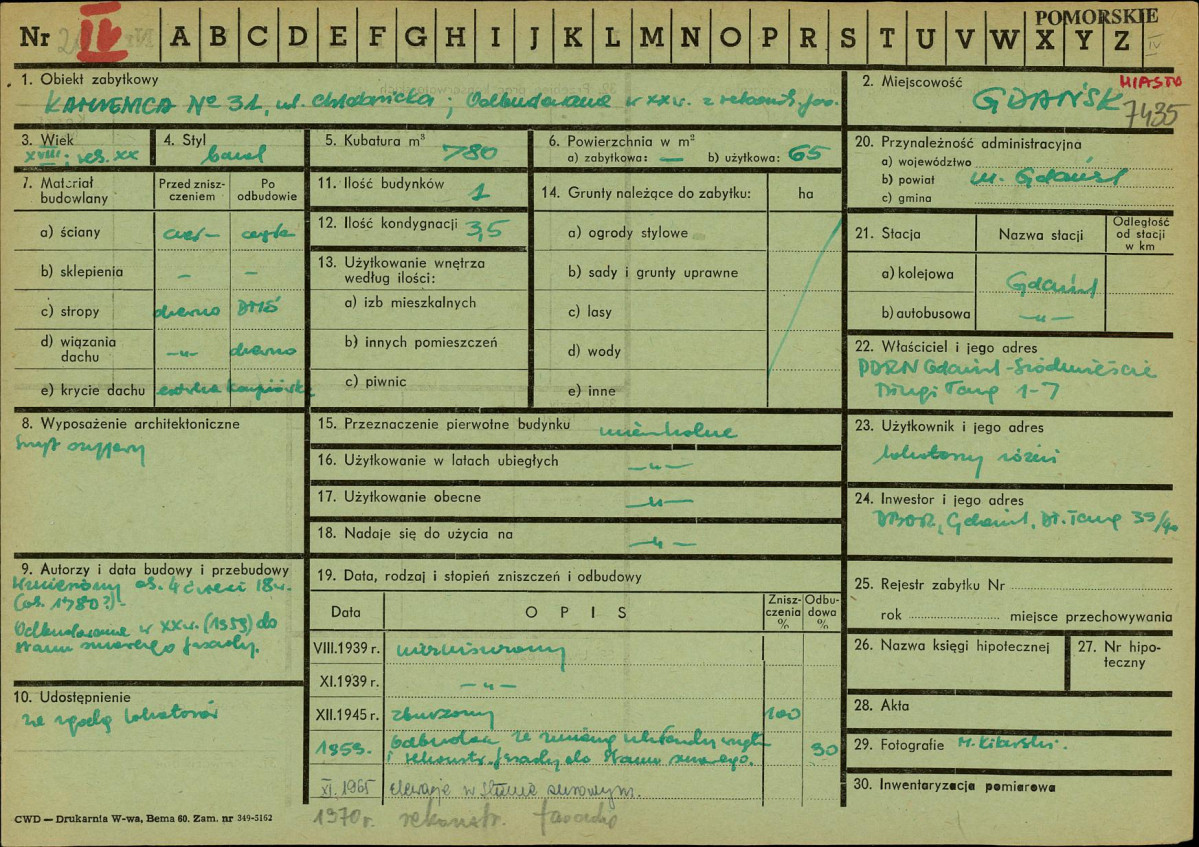 POMORSKIE
Nr IV A B C D E F G H I J K L M N O P R S T U V W X Y Z IV
1. Obiekt zabytkowy
KAMIENICA Nº 31, ul. Chlebnicka; Odbudowana w XX w. z rekonstr. fas.
2. Miejscowość MIASTO
GDAŃSK 7435
3. Wiek
XVIII; res. XX
4. Styl
barok
5. Kubatura m³ 780
6. Powierzchnia w m²
a) zabytkowa: — b) użytkowa: 65
7. Materiał budowlany
Przed zniszczeniem
Po odbudowie
a) ściany cegł- cegła
b) sklepienia - -
c) stropy drewno DMS
d) wiązania dachu -"- drewno
e) krycie dachu
11. Ilość budynków 1
12. Ilość kondygnacji 3,5
13. Użytkowanie wnętrza
według ilości:
a) izb mieszkalnych
b) innych pomieszczeń
c) piwnic
14. Grunty należące do zabytku: ha
a) ogrody stylowe
b) sady i grunty uprawne
c) lasy
d) wody
e) inne
20. Przynależność administracyjna
a) województwo
b) powiat m. Gdańsk
c) gmina
21. Stacja
Nazwa stacji
Odległość od stacji w km
a) kolejowa Gdańsk
b) autobusowa -"-
22. Właściciel i jego adres
PDRN Gdańsk-Śródmieście
Długi Targ 1-7
8. Wyposażenie architektoniczne
15. Przeznaczenie pierwotne budynku mieszkalne
16. Użytkowanie w latach ubiegłych -"-
17. Użytkowanie obecne -"-
18. Nadaje się do użycia na -"-
23. Użytkownik i jego adres
lokatorzy różni
24. Inwestor i jego adres
DBOR, Gdańsk, Dł. Targ 39/40
9. Autorzy i data budowy i przebudowy
Wzniesiony ok. 4 ćwierci 18 w.
(ok. 1780?)-
Odbudowana w XX w. (1953) do
stanu surowego fasady.
10. Udostępnienie
za zgodą lokatorów
19. Data, rodzaj i stopień zniszczeń i odbudowy
Data OPIS Zniszczenia % Odbudowa %
VIII.1939 r. niezniszczony
XI.1939 r. -"-
XII.1945 r. zburzony 100
1953. Odbudowa ze zmianą układu wnętrz 90
i rekonstr. fasady do stanu surowego.
XI.1965 elewacje w stanie surowym.
1970 r. rekonstr. fasady
25. Rejestr zabytku Nr
rok miejsce przechowywania
26. Nazwa księgi hipotecznej
27. Nr hipoteczny
28. Akta
29. Fotografie
30. Inwentaryzacja pomiarowa
CWD — Drukarnia W-wa, Bema 60. Zam. nr 349-5162